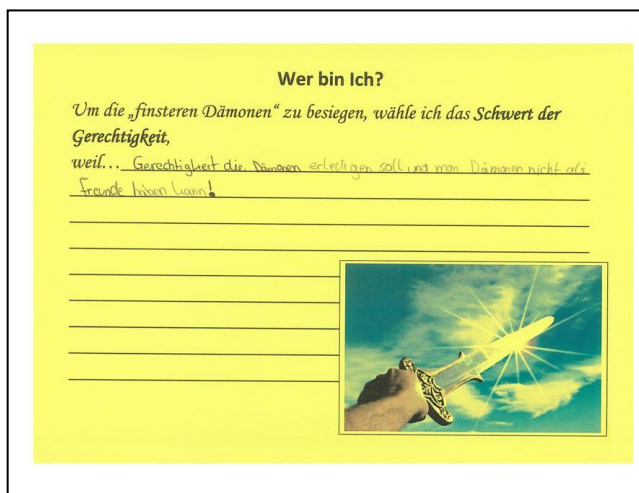 Wer bin Ich?
Um die „finsteren Dämonen“ zu besiegen, wähle ich das Schwert der
Gerechtigkeit,
weil... Gerechtigkeit die Dämonen erledigen soll und man Dämonen nicht als
Freunde haben kann!